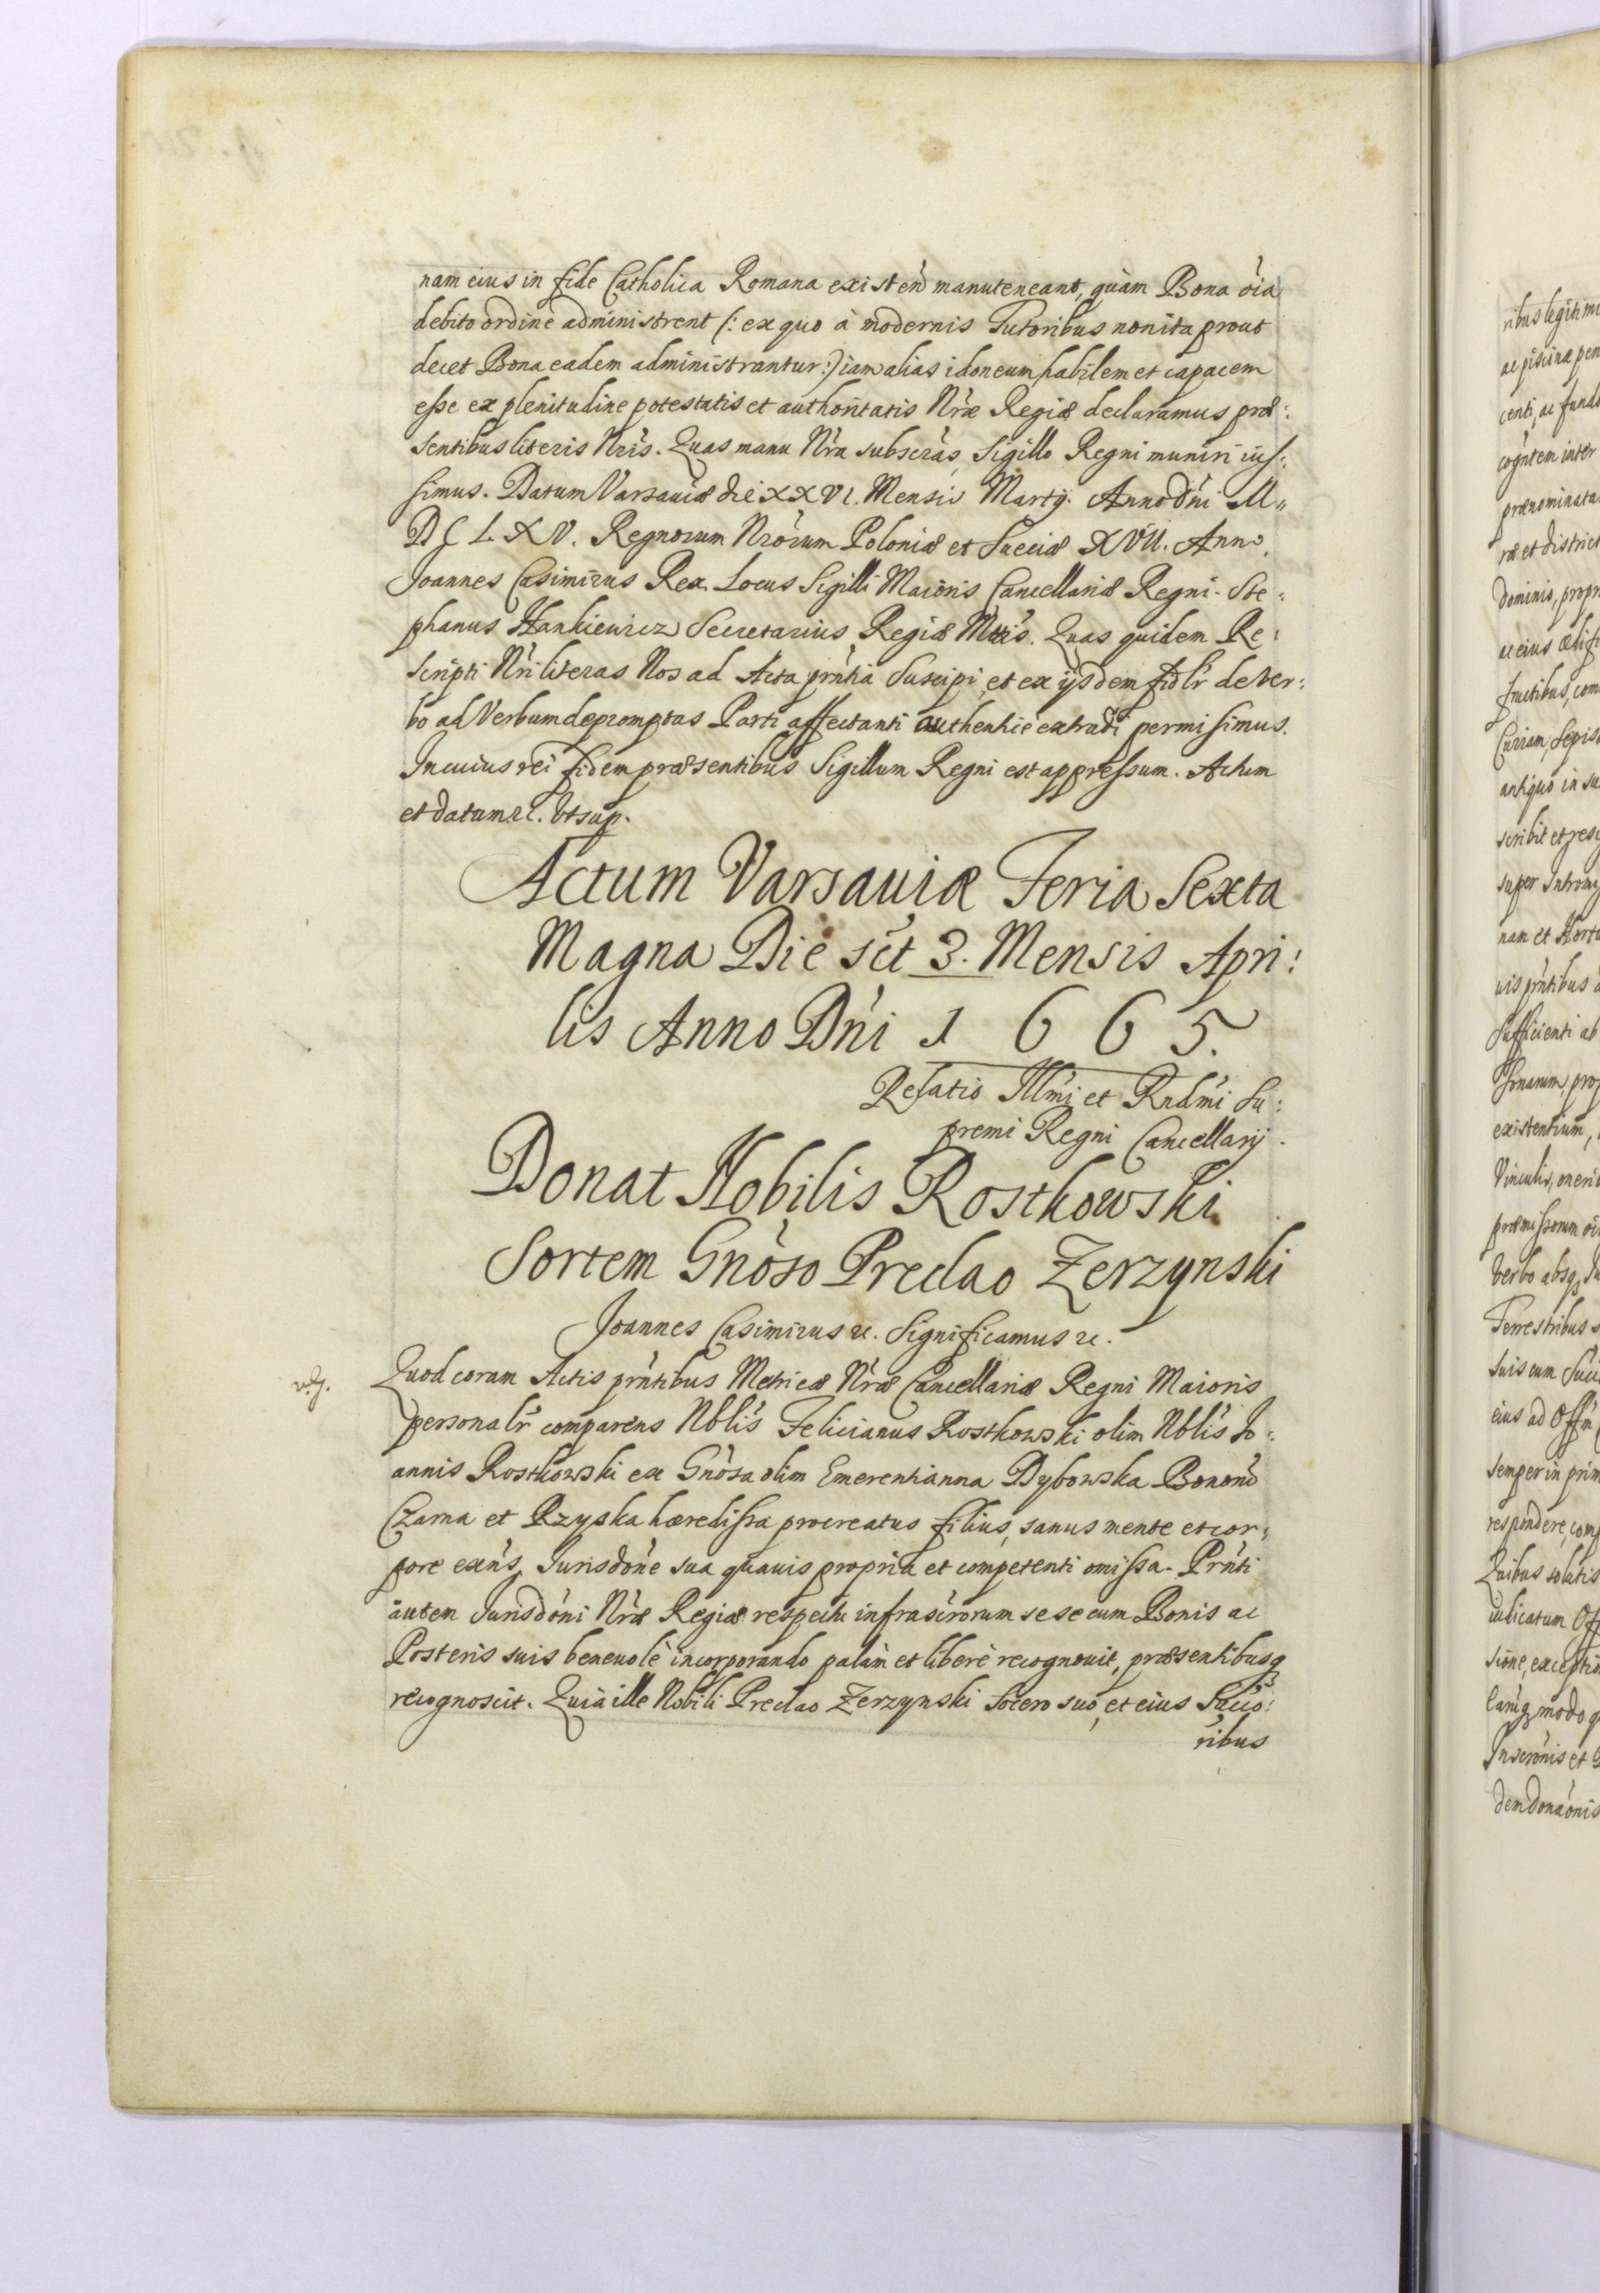 nam eius in fide Catholica Romana existeñ manuteneant, quàm Bona oîa
debito ordine administrent (: ex quo à modernis Tutoribus non ita prout
decet Bona eadem administrantur:) iam alias idoneum habilem et capacem
esse ex plenitudine potestatis et authoritatis Nræ Regiæ declaramus præ:
sentibus literis Nris. Quas manu Nra subscras, Sigillo Regni muniri ius:
simus. Datum Varsauiæ die XXVI. Mensis Martij. Anno Dni M„
D C L X V. Regnorum Nrorum Poloniæ et Sueciæ XVII. Anno.
Joannes Casimirus Rex. Locus Sigilli Maioris Cancellariæ Regni. Ste„
phanus Hankiewicz Secretarius Regiæ Mttis. Quas quidem Re:
scripti Nri literas Nos ad Acta prntia Suscipi, et ex ijsdem fidlr de Ver:
bo ad Verbum depromptas Parti affectanti authentice extradi permisimus.
In cuius rei fidem præsentibus Sigillum Regni est appressum. Actum
et datum zc. Vt sup.
Actum Varsauiæ Feria Sexta
Magna Die sct 3. Mensis Apri:
lis Anno Dni 1665.
Relatio Illmi et Rndmi Su:
premi Regni Cancellarij.
Donat Nobilis Rostkowski
Sortem Gnoso Preclao Zerzynski
Joannes Casimirus zc. Significamus zc.
Quod coram Actis prntibus Metricæ Nræ Cancellariæ Regni Maioris
personalr comparens Nblis Felicianus Rostkowski olim Nblis Jo„
annis Rostkowski ex Gnosa olim Emerentianna Dybowska Bonoru
Czarna et Rzyska hæredissa procreatus filius, sanus mente et cor„
pore exns, Jurisdone sua quauis propria et competenti omissa. Prnti
autem Jurisdoni Nræ Regiæ respectu infrascrorum sese cum Bonis ac
Posteris suis beneuolè incorporando palàm et liberè recognouit, præsentibusq
recognoscit. Quia ille Nobili Preclao Zerzynski Socero suo, et eius Succo:
ribus
ribus legitimi
ac piscina
centi, ac fund
cogntem inter
prænominata
ræ et district
dominio, propr
ac eius ædifi
fructibus, com
Curiam, Sepis
antiquo in su
scribit et resi
super Introm
nam et Horto
uis prntibus
Sufficienti ab
sonarum, prop
existentium,
Vinculis, oneri
præmissorum
Verbo absq
Terrestribus
suis cum Succ
eius ad Off
semper in prim
respondere, comp
Quibus solutis
iudicatum Off
sione, exceptio
modo q
Inscronis et
dem donaonis